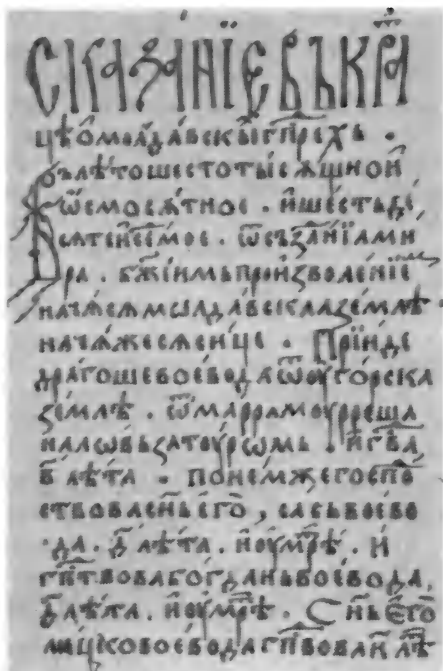 СКАЗАНЇЕ ВЪ КРА
цѣ ѡ молдавскых гп҃рехь .
Вь лѣто шестотысѧщной
ѿсмосѧтное . и шестьде
сѧт и седмое . ѿ създанїа ми
ра . бж҃іимь произволенїе
начѧсѧ мѡлдавскаа землѣ
начѧжесѧ сице . Прїиде
драгошь воевода ѿ оугорска
землѣ . ѿ
на ловь за тоурѡмь . и
в҃ лѣта . по нем же госпо
ствова сн҃ь его , сась воево
да . д҃ лѣта . и оумрѣ . И
гп҃ствова богдань воевода .
д҃ лѣта . и оумрѣ . Сн҃ь его
лацко воевода гп҃вова н҃ лѣ